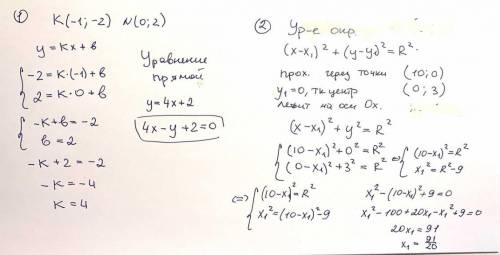 ① K(-1;-2) N(0;2)
y=Kx+в
{ -2=K·(-1)+в
2=K·0+в
{ -K+в=-2
в=2
-K+2=-2
-K=-4
K=4
Уравнение
прямой
y=4x+2
4x-y+2=0
② Ур-е окр.
(x-x₁)²+(y-y₁)²=R²
прох. через точки (10;0)
y₁=0, тк центр (0;3)
лежит на оси Ox.
(x-x₁)²+y²=R²
{ (10-x₁)²+0²=R² <=> { (10-x₁)²=R²
(0-x₁)²+3²=R² x₁²=R²-9
<=> { (10-x₁)²=R² x₁²-(10-x₁)²+9=0
x₁²=(10-x₁)²-9 x₁²-100+20x₁-x₁²+9=0
20x₁=91
x₁=91/20